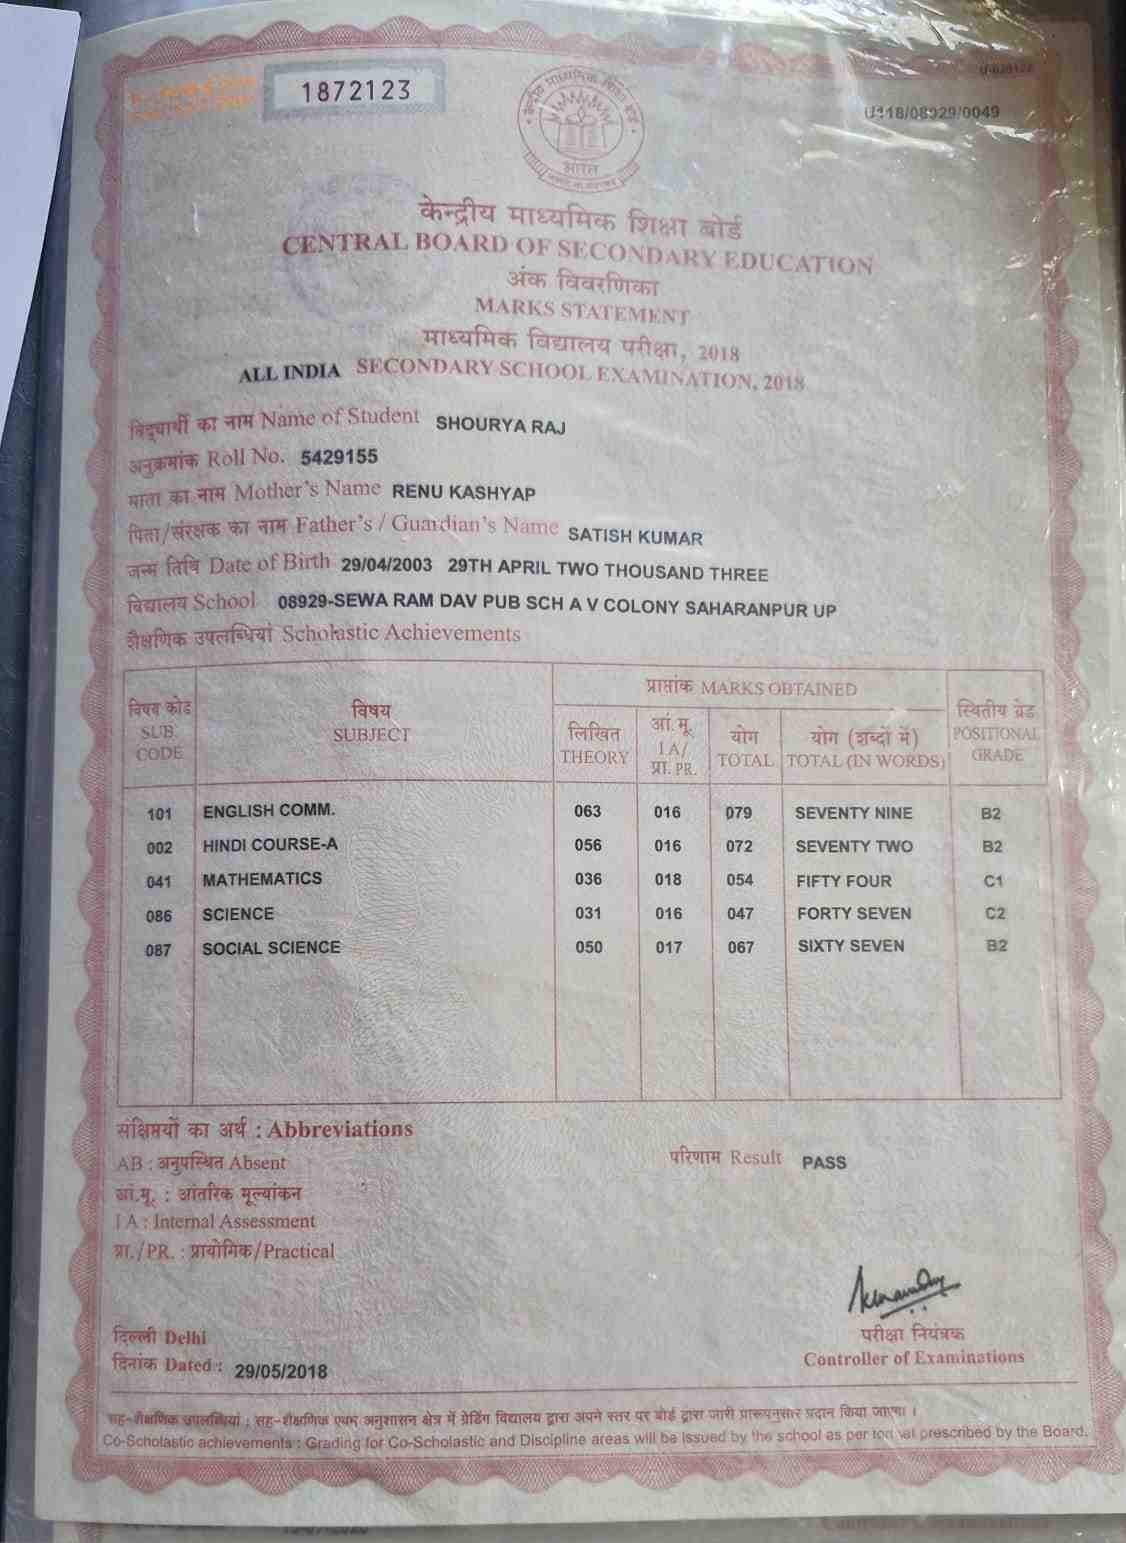 1872123
U118/08929/0049
केन्द्रीय माध्यमिक शिक्षा बोर्ड
भारत
केन्द्रीय माध्यमिक शिक्षा बोर्ड
CENTRAL BOARD OF SECONDARY EDUCATION
अंक विवरणिका
MARKS STATEMENT
माध्यमिक विद्यालय परीक्षा, 2018
ALL INDIA SECONDARY SCHOOL EXAMINATION, 2018
विद्यार्थी का नाम Name of Student SHOURYA RAJ
अनुक्रमांक Roll No. 5429155
माता का नाम Mother's Name RENU KASHYAP
पिता/संरक्षक का नाम Father's / Guardian's Name SATISH KUMAR
जन्म तिथि Date of Birth 29/04/2003 29TH APRIL TWO THOUSAND THREE
विद्यालय School 08929-SEWA RAM DAV PUB SCH A V COLONY SAHARANPUR UP
शैक्षणिक उपलब्धियां Scholastic Achievements
विषय कोड SUB CODE विषय SUBJECT प्राप्तांक MARKS OBTAINED स्थितीय ग्रेड POSITIONAL GRADE
लिखित THEORY आं.मू. I A/ प्रा. PR. योग TOTAL योग (शब्दों में) TOTAL (IN WORDS)
101 ENGLISH COMM. 063 016 079 SEVENTY NINE B2
002 HINDI COURSE-A 056 016 072 SEVENTY TWO B2
041 MATHEMATICS 036 018 054 FIFTY FOUR C1
086 SCIENCE 031 016 047 FORTY SEVEN C2
087 SOCIAL SCIENCE 050 017 067 SIXTY SEVEN B2
संक्षिप्तियों का अर्थ : Abbreviations
AB : अनुपस्थित Absent
परिणाम Result PASS
आं.मू. : आंतरिक मूल्यांकन
I A : Internal Assessment
प्रा./PR. : प्रायोगिक/Practical
दिल्ली Delhi
दिनांक Dated : 29/05/2018
परीक्षा नियंत्रक
Controller of Examinations
सह-शैक्षणिक उपलब्धियां : सह-शैक्षणिक एवम् अनुशासन क्षेत्र में ग्रेडिंग विद्यालय द्वारा अपने स्तर पर बोर्ड द्वारा जारी प्रारूपनुसार प्रदान किया जाएगा ।
Co-Scholastic achievements : Grading for Co-Scholastic and Discipline areas will be issued by the school as per prescribed by the Board.